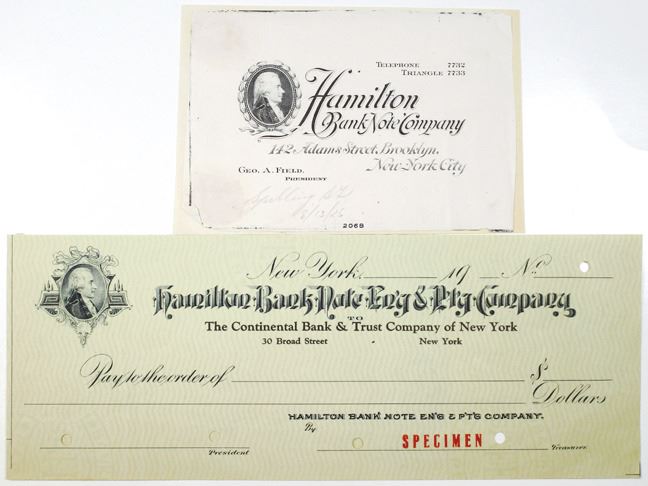 TELEPHONE 7732
TRIANGLE 7733
Hamilton
Bank Note Company
142 Adams Street, Brooklyn,
New York City
GEO. A. FIELD.
PRESIDENT
2068
New York, 19 No.
Hamilton Bank Note Eng & Ptg Company
TO
The Continental Bank & Trust Company of New York
30 Broad Street New York
Pay to the order of $
Dollars
HAMILTON BANK NOTE ENG & PTG COMPANY.
By
SPECIMEN
President Treasurer